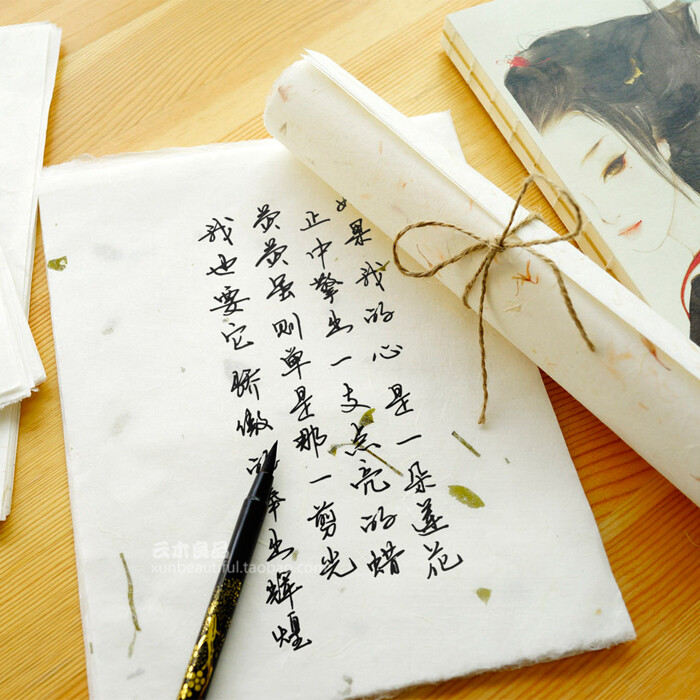 如果我的心是一朵莲花
正中擎出一支点亮的蜡
荧荧虽则单是那一剪光
我也要它骄傲的捧出辉煌
云木良品
xunbeautiful.taobao.com